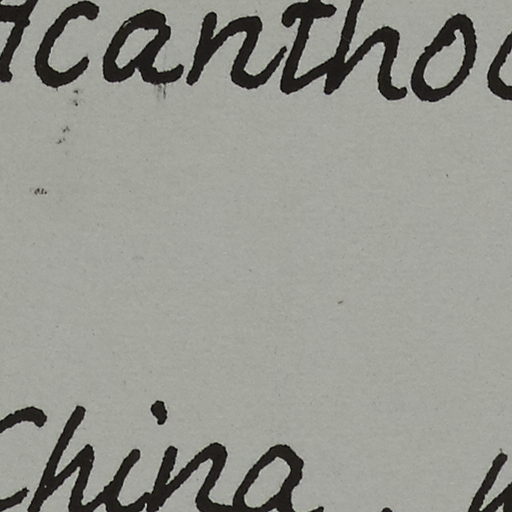 Acanthoc
China.